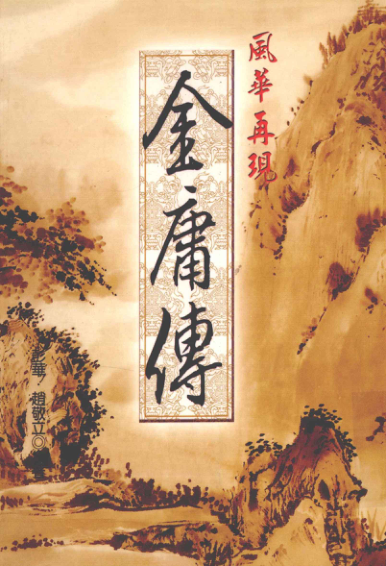 風華再現
金庸傳
彭華/趙敬立◎著